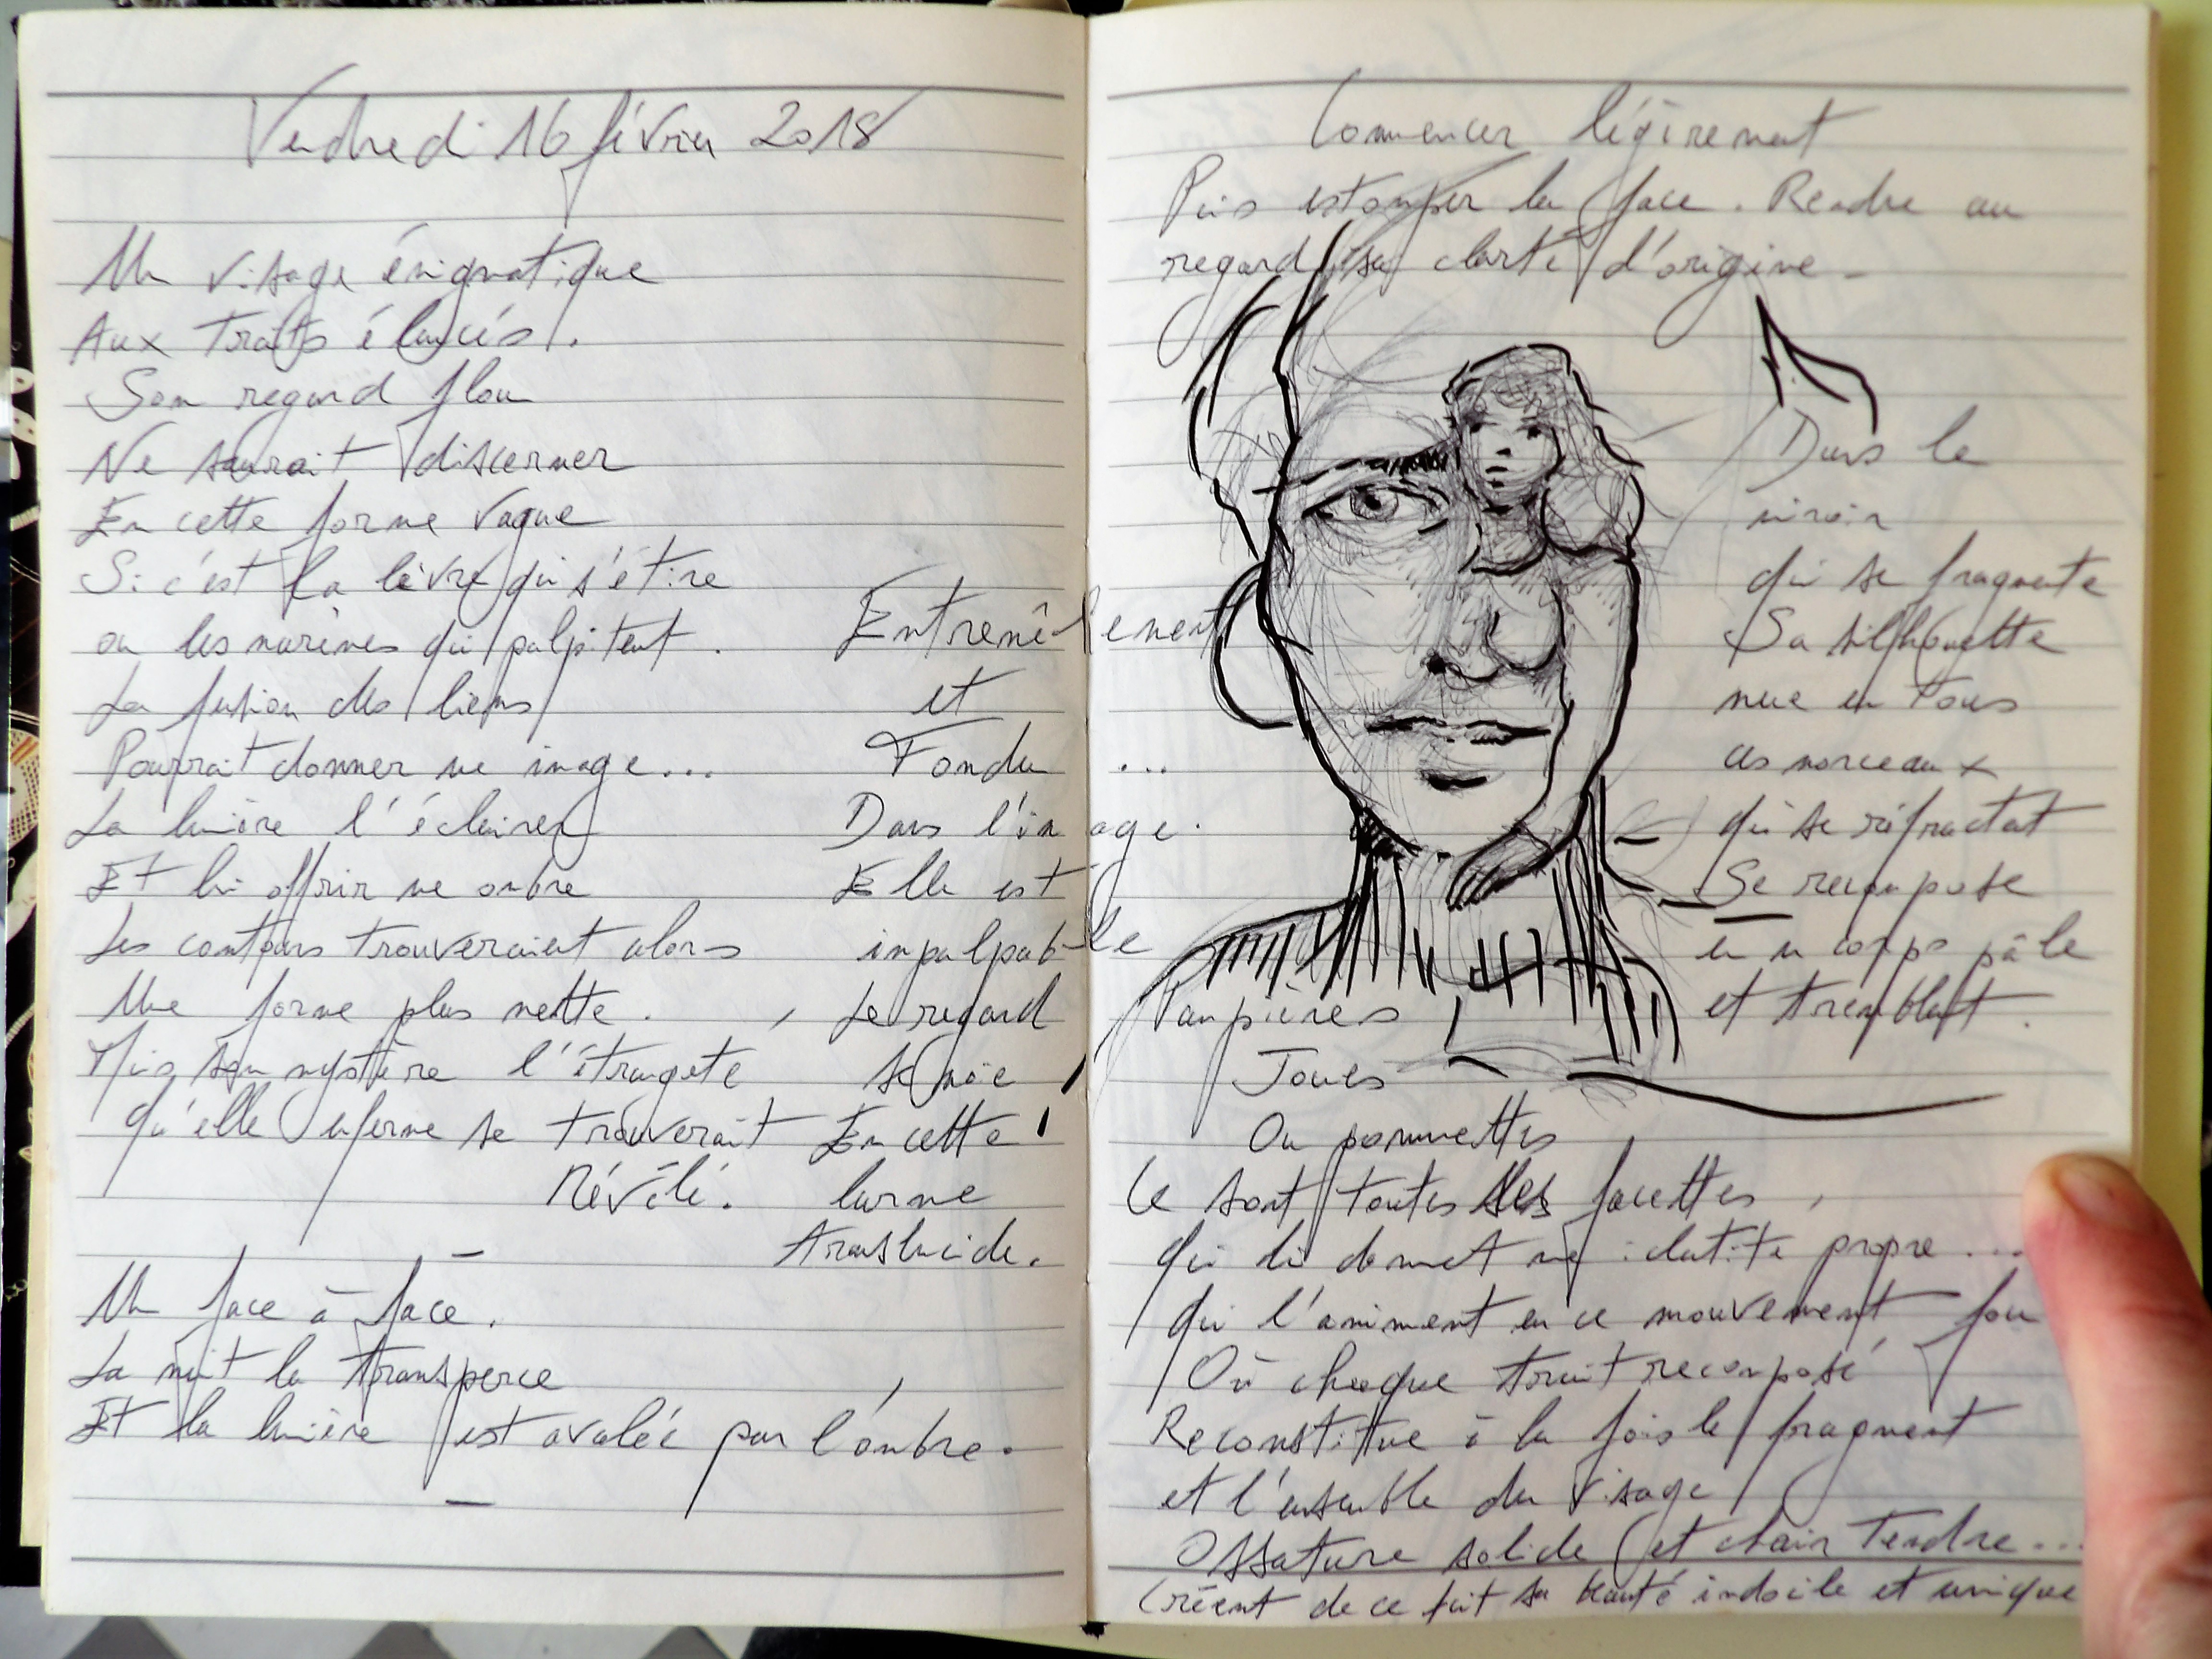 Vendredi 16 février 2018
Un visage énigmatique
Aux traits élancés.
Son regard flou
Ne saurait discerner
En cette forme vague
Si c'est la lèvre qui s'étire
ou les narines qui palpitent.
La fusion des liens
Pourrait donner une image...
La lumière l'éclairer
Et lui offrir une ombre
Les contours trouveraient alors
Une forme plus nette.
Mis son mystère l'étrangeté
qu'elle enferme se trouverait
Révélé.
Un face à face.
La nuit la transperce
Et la lumière est avalée par l'ombre.
Entremêlement
et
Fondu ...
Dans l'image.
Elle est
impalpable
Le regard
se noie
En cette
larme
translucide.
Commencer légèrement
Puis estomper la face. Rendre au
regard sa clarté d'origine
Dans le
miroir
qui se fragmente
Sa silhouette
nue en tous
ces morceaux
qui se réfractant
Se recompose
en un corps pâle
et tremblant.
Paupières
Joues
Ou pommettes
Ce sont toutes ses facettes,
qui lui donnent une identité propre...
qui l'animent en ce mouvement fou
Où chaque trait recomposé
Reconstitue à la fois le fragment
et l'ensemble du visage
Ossature solide et chair tendre...
Créent de ce fait sa beauté indocile et unique